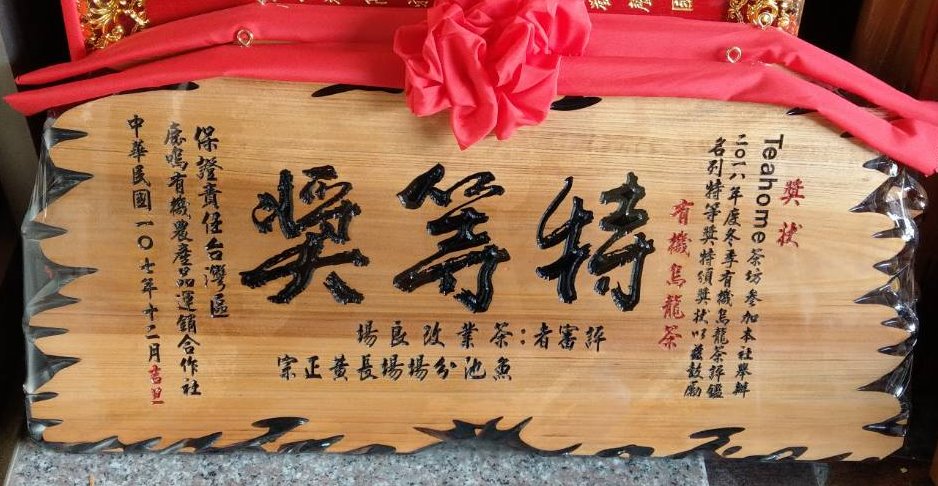 獎狀
Teahome茶坊參加本社舉辦
二〇一八年度冬季有機烏龍茶評鑑
名列特等獎特頒獎狀以茲鼓勵
有機烏龍茶
特等獎
評審者：茶業改良場
魚池分場場長黃正宗
保證責任台灣區
鹿鳴有機農產品運銷合作社
中華民國一〇七年十二月吉旦